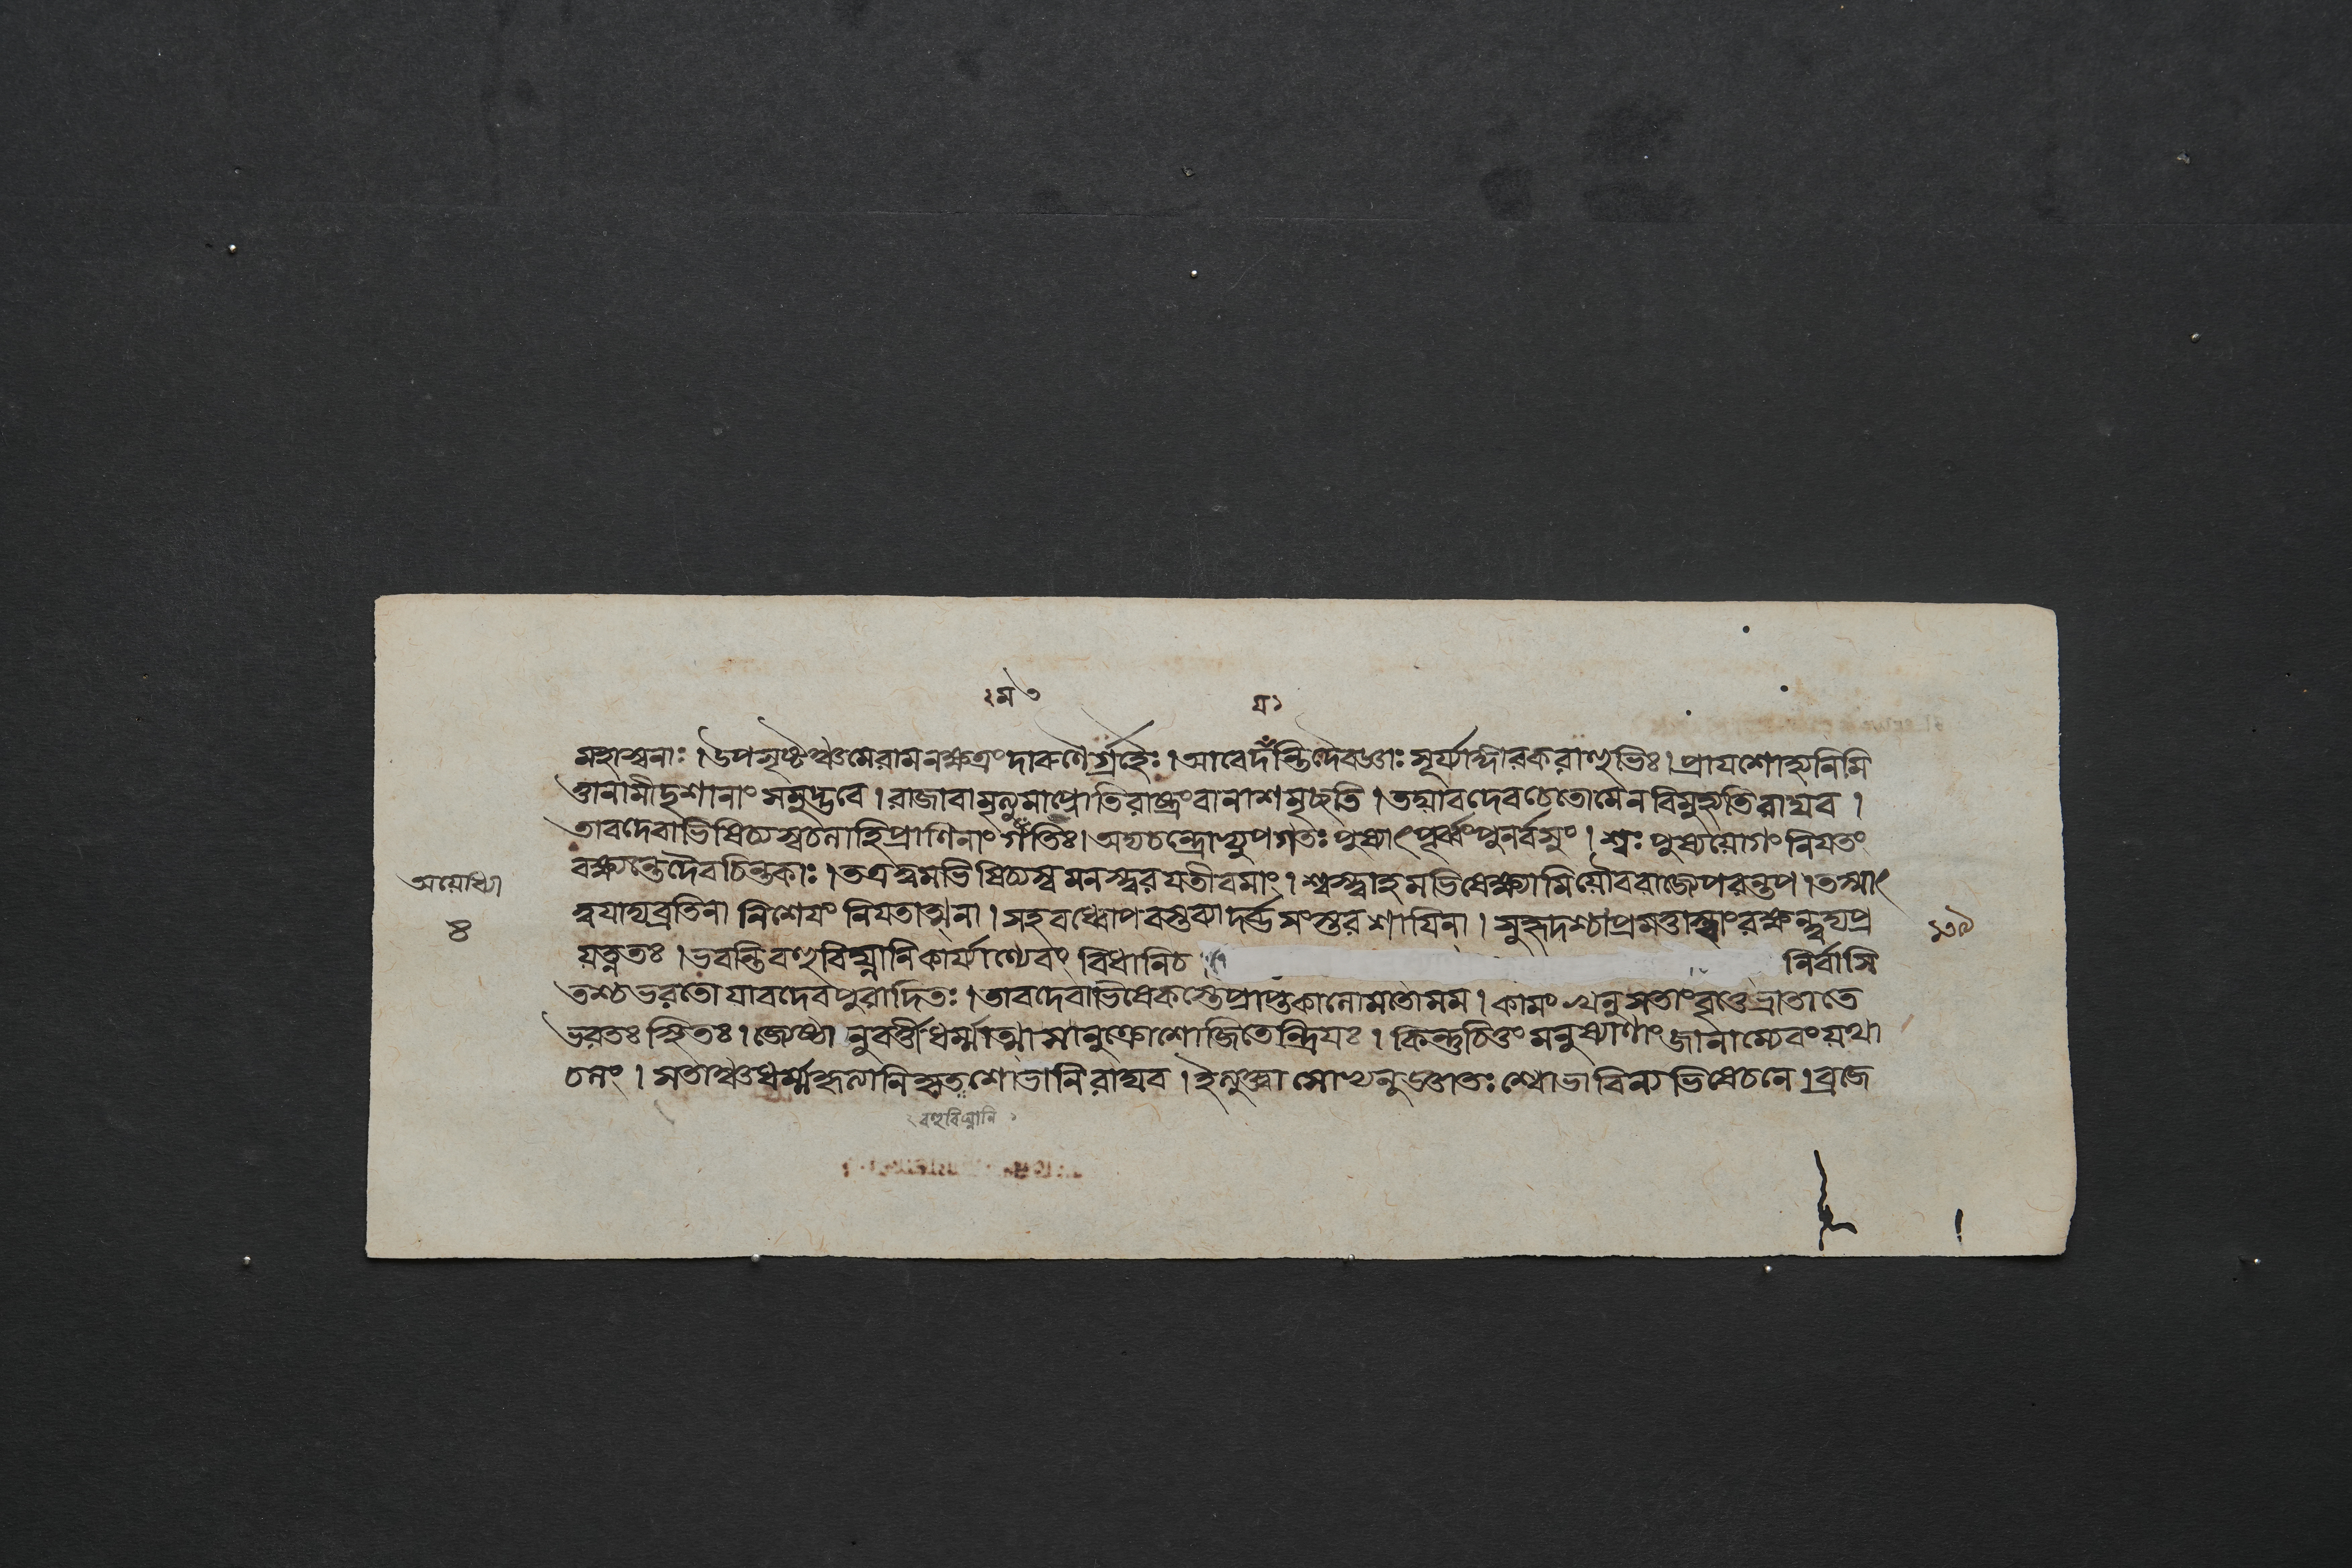 ঃম৩
য়ঃ
মহাস্বনাঃ । উপসৃষ্টঞ্চমেরামনক্ষত্রংদারুণৈর্গ্রহৈঃ । আবেদন্তিদৈবজ্ঞাঃ সূর্য্যাঙ্গারকরাহুভিঃ । প্রাযশোহ্যনিমি
ত্তানামীদৃশানাং সমুদ্ভবে । রাজাবামৃত্যুমাপ্নোতিরাষ্ট্রংবানাশমৃচ্ছতি । তয্যাবদেবচেতোমেনবিমুহ্যতিরাঘব ।
তাবদেবাভিষিচ্যস্বচলাহিপ্রাণিনাং গতিঃ । অদ্যচন্দ্রোহ্যুপগতঃ পুষ্যাৎপূর্ব্বংপুনর্বসুং । শ্বঃ পুষ্যয়োগং নিযতং
বক্ষ্যন্তেদৈবচিন্তকাঃ । তত্রত্বমভিষিচ্যস্ব মনস্ত্বরযতীবমাং । শ্বস্ত্বাহমভিষেক্ষ্যামিয়ৌবরাজ্যেপরন্তপ । তস্মাৎ
ত্বযাদ্যব্রতিনা নিশেযং নিযতাত্মনা । সহবধ্বোপবস্তব্যা দর্ব্ভসংস্তরশাযিনা । সুহৃদশ্চাপ্রমত্তাস্ত্বাংরক্ষন্ত্বদ্যপ্র
য়ত্নতঃ । ভবন্তিবহুবিঘ্নানিকার্য্যাণ্যেবং বিধানিচ নির্বাসি
তশ্চভরতোযাবদেবপুরাদিতঃ । তাবদেবাভিষেকস্তেপ্রাপ্তকালোমতোমম । কামং খলুসতাংবৃত্তেভ্রাতাতে
ভরতঃ স্থিতঃ । জ্যেষ্ঠা নুবর্ত্তীধর্ম্মাত্মাসানুক্রোশোজিতেন্দ্রিযঃ । কিন্তুচিত্তং মনুষ্যাণাং জানাম্যেবংয়থা
চলং । সতাঞ্চধর্ম্মহৃলানিহৃতশোভানিরাঘব । ইত্যুক্ত্বা সোভ্যনুজ্ঞাতঃ শ্বোভাবিন্যভিষেচনে । ব্রজে
অয়োধ্যা
৪
১৩৯
বহুবিঘ্নানি